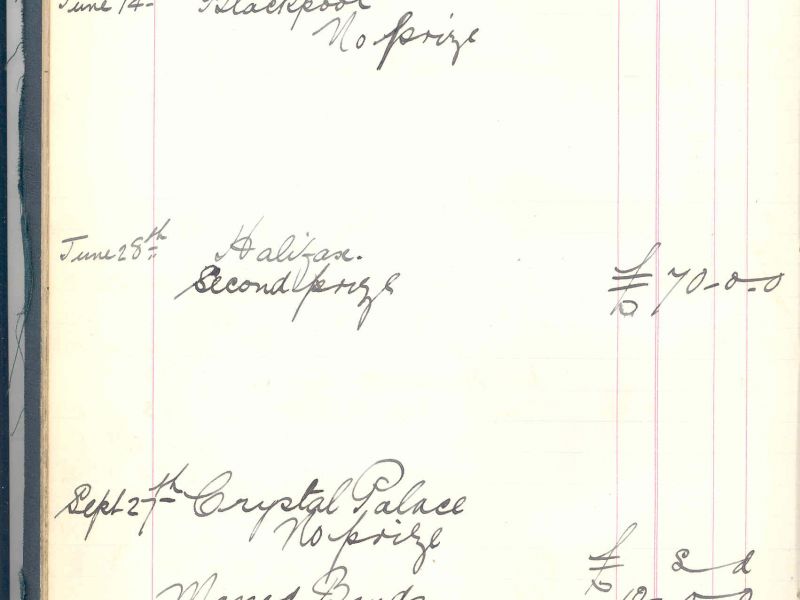 June 14 Blackpool
No prize
June 28th Halifax.
Second prize £ 70-0-0
Sept 27th Crystal Palace
No prize
£ s d
Massed Bands 10-0-0